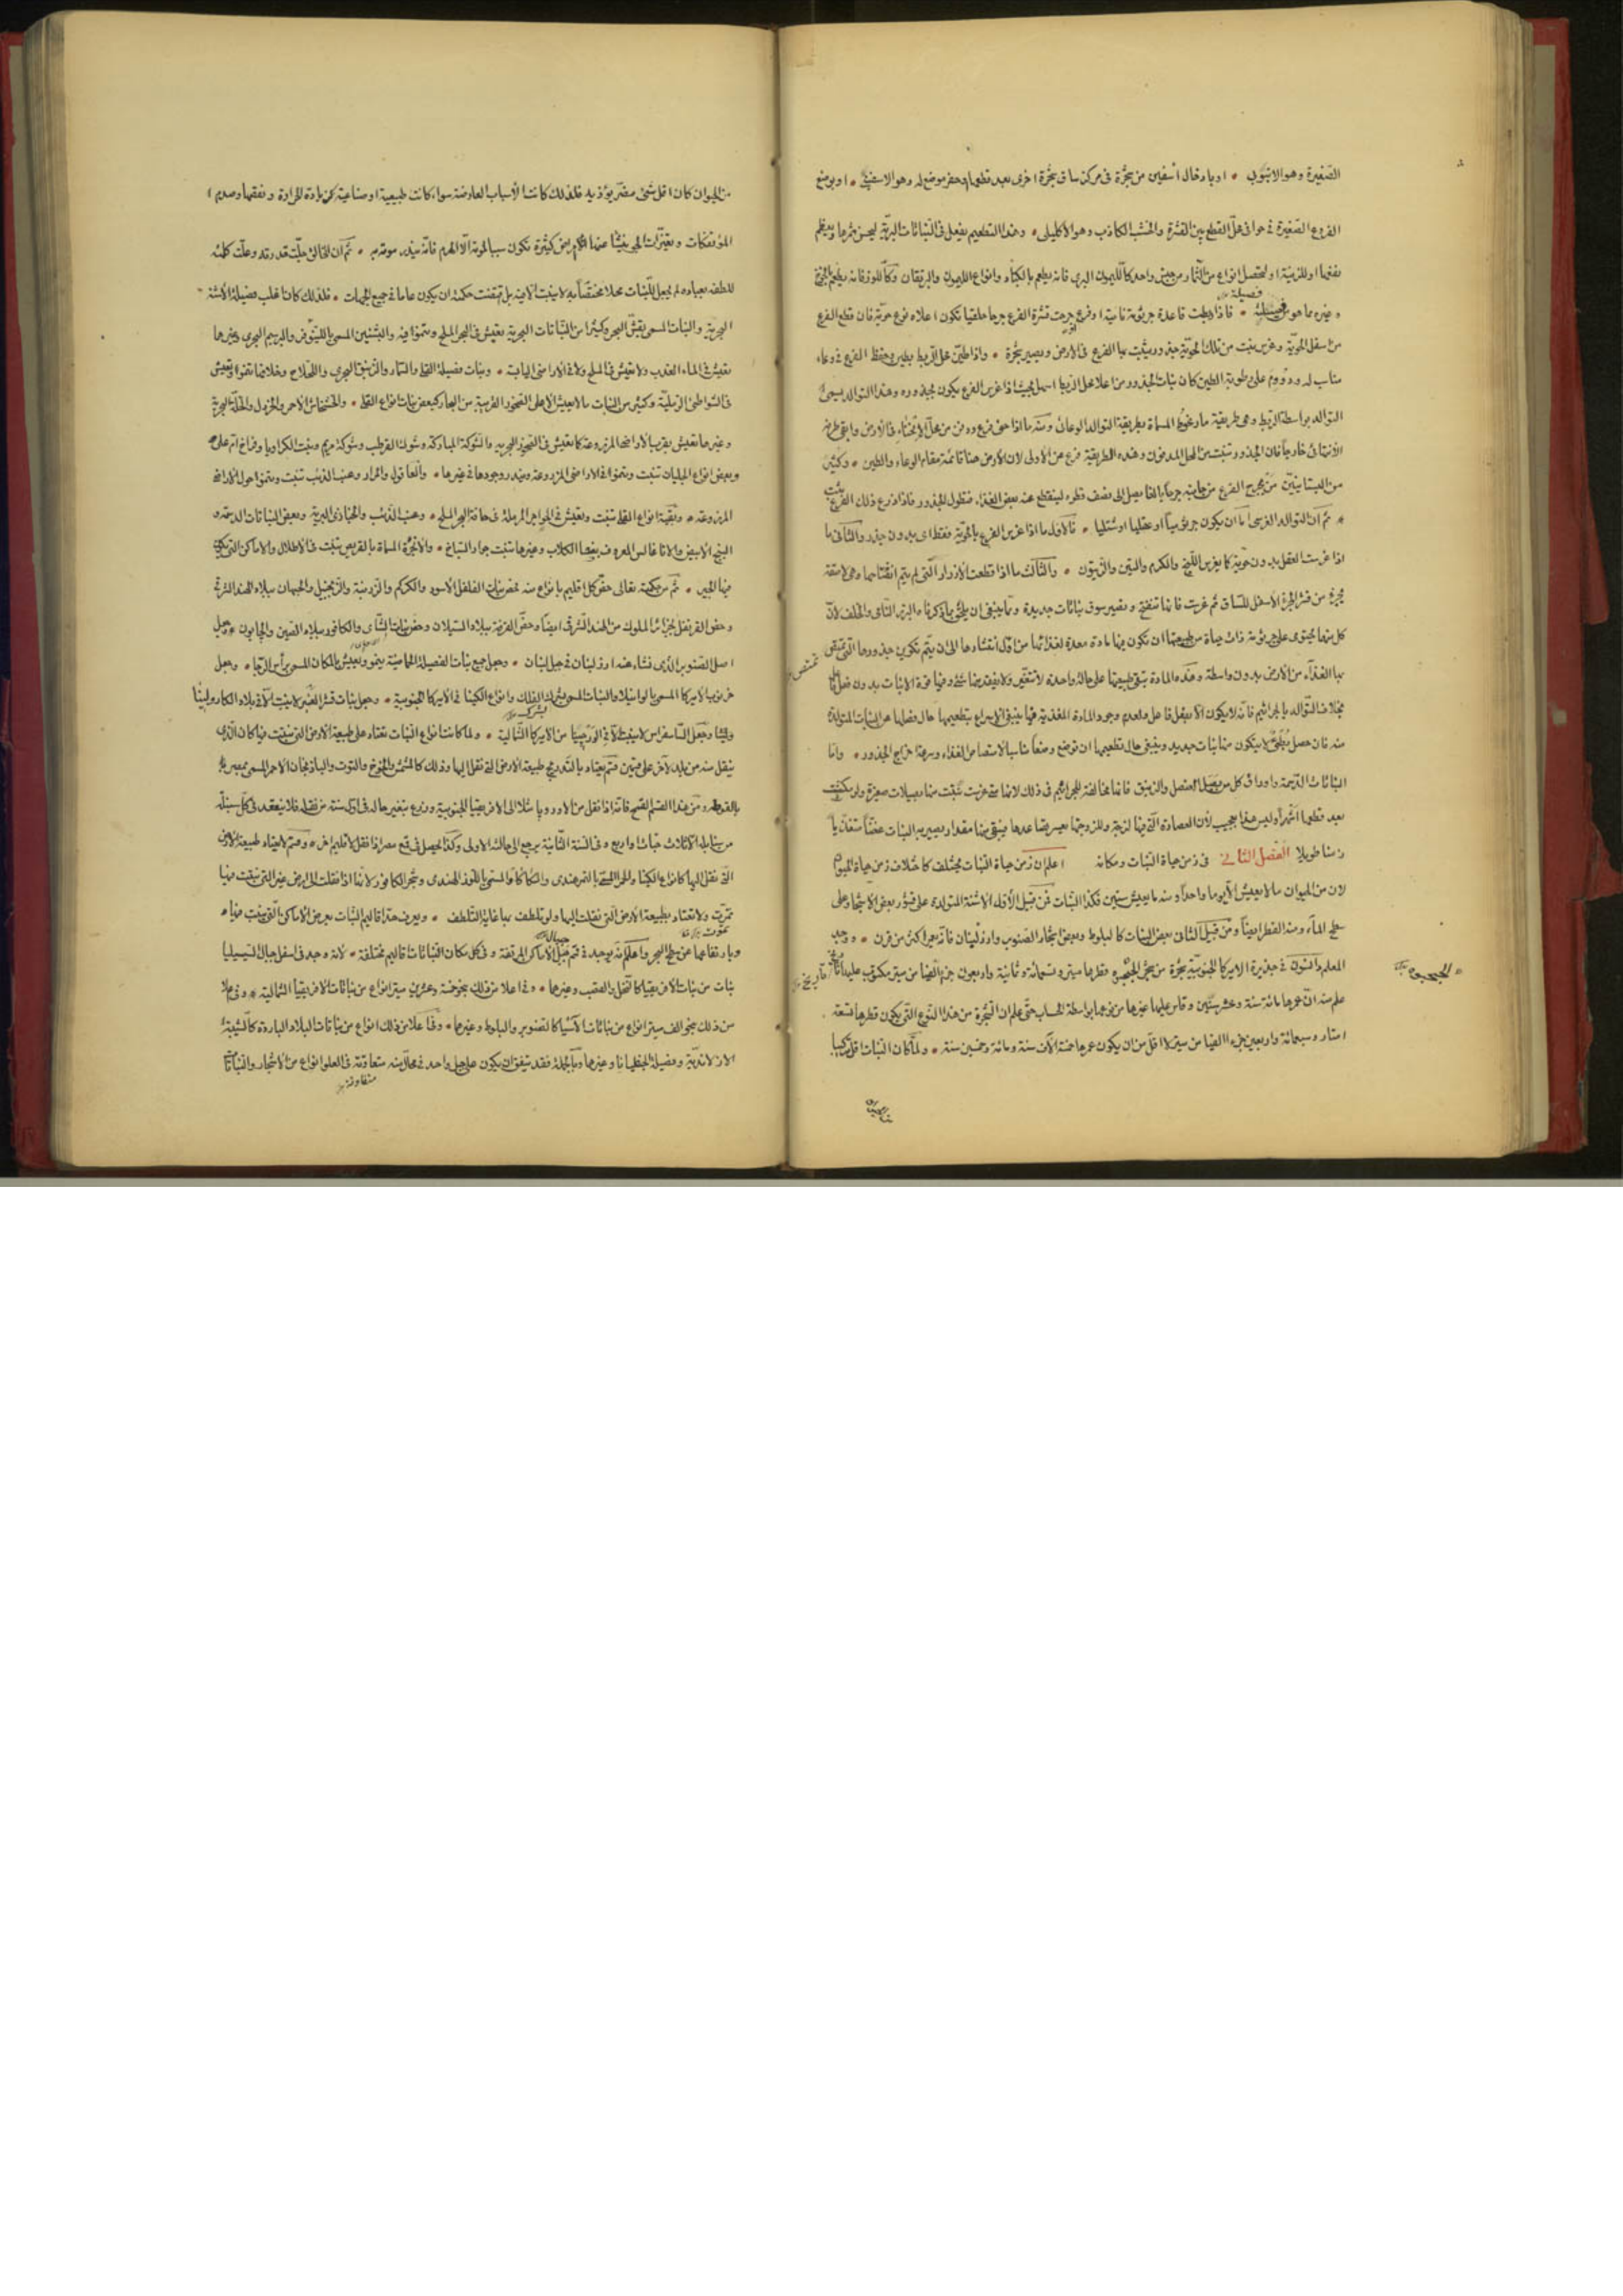 الصغيرة وهو الانبوبى * او بادخال اسفين من شجرة فى مركز ساق شجرة اخرى بعد قطعها وحفر موضع له وهو الاسفينى * او بوضع
الفروع الصغيرة فى حوافى محل القطع بين القشرة والخشب الكاذب وهو الاكليلى * وهذا التطعيم يفعل فى النباتات البرية ليحسن ثمرها ويعظم
نفعها او للزينة او لتحصل انواع من الثمار من جنس واحد كالليمون البرى فانه يطعم بالكباد وانواع الليمون والبرتقان وكاللوز فانه يطعم
وغيره مما هو من فصيلته * فاذا ربطت قاعدة جرثومة نامية او فرع جرحت قشرة الفرع جرحا حلقيا تكون اعلاه نوع حوية فان قطع الفرع
من اسفل الحوية وغرس نبت من تلك الحوية جذور يثبت بها الفرع فى الارض ويصير شجرة * واذا طين محل الربط بطين وحفظ الفرع فى وعاء
مناسب له ودووم على رطوبة الطين كان نبات الجذور من اعلا محل الربط اسهل بحيث اذا غرس الفرع يكون بجذوره وهذا التوالد يسمى
التوالد بواسطة الربط وهى طريقة المسماة بطريقة التوالد الوعائى ومنه ما اذا حنى فرع ودفن من محل الانحناء فى الارض وابقى طرفه
الانتهائى خارجا فان الجذور تنبت من المحل المدفون وهذه الطريقة فرع من الاولى لان الارض هنا قائمة مقام الوعاء والطين * وكثير
من البستانيين من يجرح الفرع من جانبه جرحا بالغا يصل الى نصف قطره لينقطع عنه بعض الغذاء فتطول الجذور فاذا زرع ذلك الفرع نبت
* ثم ان التوالد الغرسى اما ان يكون جرثوميا او عقليا او شتليا * فالاول ما اذا غرس الفرع بالحوية فقط اى بدون جذور والثانى ما
اذا غرست العقل بدون حوية كما يغرس اللبخ والكرم والتين والزيتون * والثالث ما اذا قطعت الازرار التى لم يتم انفتاحها وهى لاصقة
بجزء من قشر الجزء الاسفل للساق ثم غرست فانها تنفتح وتصير سوق نباتات جديدة ومما ينبغى ان يلحق بما ذكرنا والخلف لان
كل منها يحتوى على جرثومة ذات حياة من طبيعتها ان تكون فيها مادة معدة لغذائها من اول انتشارها الى ان يتم تكوين جذورها التى تمتص
بها الغذاء من الارض بدون واسطة وهذه المادة تبقى طبيعتها على حالة واحدة لا تتغير ولا يفقد منها شئ وفيها قوة الانبات بدون فصل
بخلاف التوالد بالجراثيم فانه لا يكون الا بفعل فاعل ولعدم وجود المادة المغذية فيها ينبغى الاسراع بتطعيمها حال فصلها عن النبات المتولدة
منه فان حصل بطئ لا يتكون منها نبات جديد وينبغى حال تطعيمها ان توضع وضعا مناسبا لامتصاص الغذاء وسرعة خراج الجذور * واما
النباتات الدسمة واوراق كل من بصل العنصل والزنبق فانها مخالفة للجراثيم فى ذلك لانها متى غرست نبتت منها بصيلات صغيرة ولو مكثت
بعد قطعها اشهرا وليس هذا بعجيب لان العصارة التى فيها لزجة وللزوجتها يعسر تصاعدها فيبقى منها مقدار يصير به النبات غضا
زمنا طويلا الفصل الثانى فى زمن حياة النبات ومكانه اعلم ان زمن حياة النبات مختلف كاختلاف زمن حياة الحيوان
لان من الحيوان ما لا يعيش الا يوما واحدا ومنه ما يعيش سنين فكذا النبات فمن قبيل الاول الاشنة المتولدة على قشور بعض الاشجار وعلى
سطح الماء ومنه الفطر ايضا ومن قبيل الثانى بعض النبات كالبلوط وبعض اشجار الصنوبر وارز لبنان فانه يعمر اكثر من قرن * ووجد
المعلم دانسون فى جزيرة الامريكا الجنوبية شجرة من شجر قطرها ميتر وتسمائة وثمانية واربعون جزء الفيا من ميتر مكتوب عليها تاريخ
علم منه ان عمرها مائة سنة وعشر سنين وقاس عليها غيرها من نوعها بواسطة الحساب حتى علم ان الشجرة من هذا النوع التى يكون قطرها تسعة
امتار وسبعمائة واربعين جزء الفيا من ميتر لا اقل من ان يكون عمرها خمسة الاف سنة ومائة وخمسين سنة * ولما كان النبات اقل تركيبا
من الحيوان كان اقل شئ مضر يؤذيه فلذلك كانت الاسباب العارضة سواء كانت طبيعية او صناعية كزيادة الحرارة ونقصها وصدم
المؤتفكات وتغيرات الجو ينشأ عنها امراض كثيرة تكون سببا لموته الا الهرم فانه يندر موته به * ثم ان الخالق جلت قدرته وعلت كلمته
للطفه بعباده لم يجعل للنبات محلا مختصا به لا ينبت الا فيه بل اقتضت حكمته ان يكون عاما فى جميع الجهات * فلذلك كان اغلب فصيلة الاشنة
البحرية والنبات المسمى بقش البحر وكثيرا من النباتات البحرية يعيش فى البحر المالح وينمو فيه والبشنين المسمى بالنينوفر والبرسيم البحرى وغيرها
يعيش فى الماء العذب ولا يعيش فى المالح ولا فى الاراضى اليابسة * ونبات فصيلة القلى والسمار والزنبق البحرى والقلاح وخلافها تنمو وتعيش
فى الشواطئ الرملية وكثير من النبات ما لا يعيش الا على الصخور القريبة من البحار كبعض نبات انواع القلى * والخشخاش الاحمر والخردل والخلة البحرية
وغيرها تعيش بقرب الاراضى المزروعة كما تعيش فى الصخور البحرية والشوكة المباركة وشوك القرطب وشوكة مريم ونبت الكراويا وفراخ ام على
وبعض انواع الجلبان تنبت وتنمو فى الاراضى المزروعة ويندر وجودها فى غيرها * والعاقول والمرار وعنب الذئب تنبت وتنمو حول الاراضى
المزروعة * وبقية انواع القلى تنبت وتعيش فى الجزائر الرملة فى حافة البحر المالح * وعنب الذئب والخبازى البرية وبعض النباتات الدسمة و
البنج الابيض والاناغالس المعروف ببغضا الكلاب وغيرها تنبت جوار السباخ * والانجرة المسماة بالقريص تنبت فى الاطلال والاماكن التى يكون
فيها الجير * ثم من حكمته تعالى خص كل اقليم بانواع منه فخص نبات الفلفل الاسود والكركم والزرنبة والزنجبيل والحبهان ببلاد الهند الشرقى
وخص القرنفل بجزائر الملوك من الهند الشرقى ايضا وخص القرفة ببلاد السيلان وخص نبات الشاى والكافور ببلاد الصين والجابون * وجعل
اصل الصنوبر الذى نشاء عنه ارز لبنان فى جبل لبنان * وجعل جميع نبات الفصيلة الحماضية ينمو ويعيش بالمكان المسمى برأس الرجا * وجعل
خرنوب الامريكا المسمى بالواسيلا والنبات المسمى بشرك الفلك وانواع الكينا فى الامريكا الجنوبية * وجعل نبات قشر العنبر لا ينبت الا فى بلاد الكارولينا
وجعل الساسفراس لا ينبت الا فى من الامريكا الشمالية * ولما كانت انواع النبات تعتاد على طبيعة الارض التى نبتت فيها كان الذى
ينقل منه من بلد لآخر على قسمين قسم يعتاد بالتدريج طبيعة الارض التى نقل اليها وذلك كالمشمش والخوخ والتوت والباذنجان الاحمر المسمى بمصر
بالقوطه ومن هذا القسم القمح فانه اذا نقل من الاوروبا مثلا الى الافريقيا الجنوبية وزرع تتغير حاله فى اول سنة من نقله فلا ينعقد فى كل سنبلة
من سنابله الا ثلاث حبات او اربع وفى السنة الثانية يرجع الى حالته الاولى وكذا يحصل فى قمح مصر اذا نقل لاقليم اخر * وقسم لا يعتاد طبيعة الارض
التى نقل اليها كانواع الكينا والحمر المسمى بالتمر هندى والكاكاو المسمى باللوز الهندى وشجر الكافور لانها اذا نقلت الى ارض غير التى نبتت فيها
تموت ولا تعتاد بطبيعة الارض التى نقلت اليها ولو تلطف بها غاية التلطف * ويعرف هذا اقاليم النبات بعرض الاماكن التى ينبت فيها *
وبارتفاعها عن سطح البحر واعلم انه يوجد فى قمم جبال الاماكن المرتفعة وفى كل مكان النباتات اقاليم مختلفة * لانه وجد فى اسفل جبال سيسيليا
نبات من نباتات الافريقيا كالنخل والقصب وغيرها * وفى اعلا من ذلك بنحو خمسة وعشرين ميتر انواع من نباتات الافريقيا الشمالية * وفى اعلا
من ذلك بنحو الف ميتر انواع من نباتات الآسيا كالصنوبر والبلوط وغيرها * وفيما علا من ذلك انواع من نباتات البلاد الباردة كالشيبة
الازلاندية وفصيلة الجنطيانا وغيرها وبالجملة فقد يتفق ان يكون على جبل واحد فى محال منه متفاوتة فى العلو انواع من الاشجار والنباتات